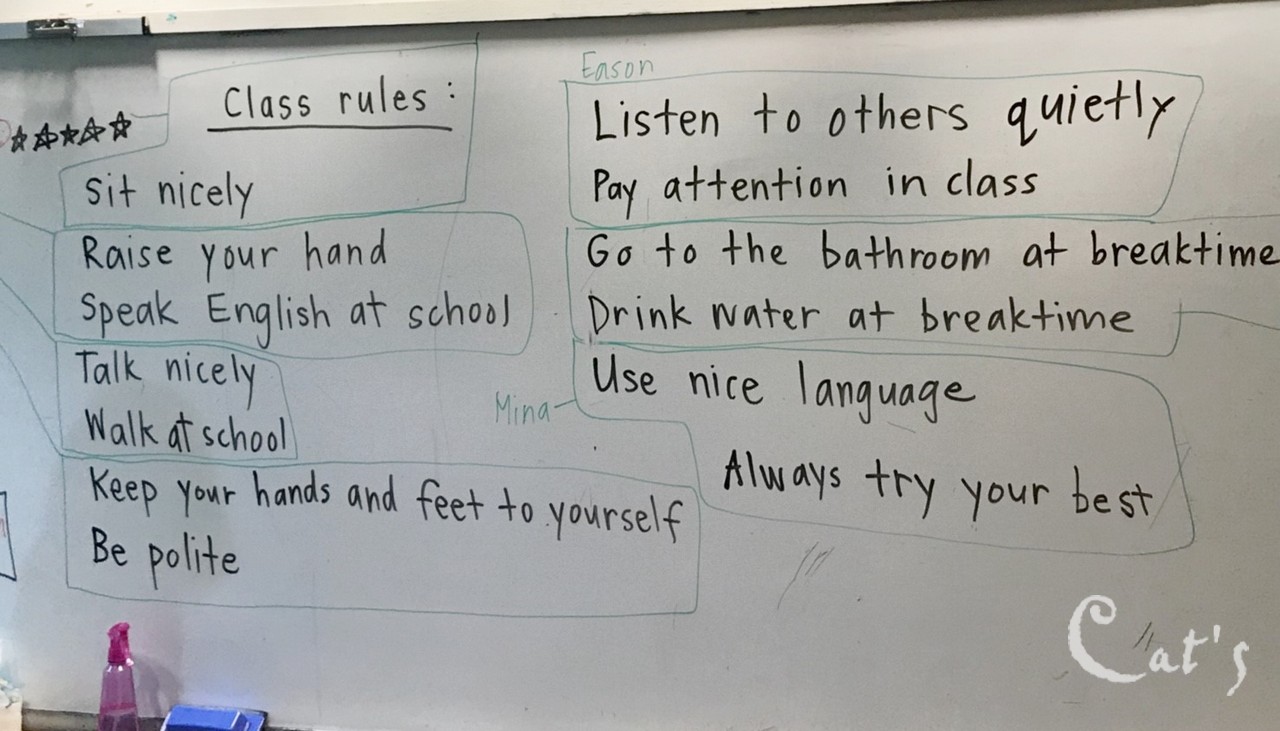 Class rules:
Sit nicely
Raise your hand
Speak English at school
Talk nicely
Walk at school
Keep your hands and feet to yourself
Be polite
Eason
Listen to others quietly
Pay attention in class
Go to the bathroom at breaktime
Drink water at breaktime
Mina
Use nice language
Always try your best
Cat's